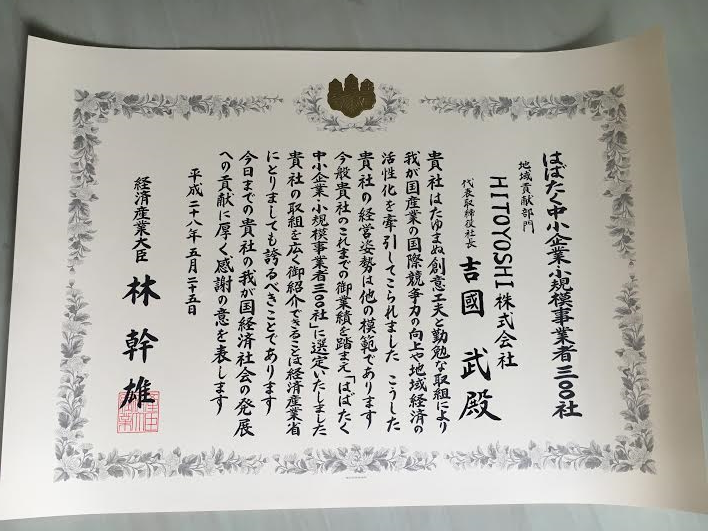 はばたく中小企業・小規模事業者三〇〇社
地域貢献部門
HITOYOSHI株式会社
代表取締役社長 吉國 武殿
貴社はたゆまぬ創意工夫と勤勉な取組により
我が国産業の国際競争力の向上や地域経済の
活性化を牽引してこられました こうした
貴社の経営姿勢は他の模範であります
今般貴社のこれまでの御業績を踏まえ「はばたく
中小企業・小規模事業者三〇〇社」に選定いたしました
貴社の取組を広く御紹介できることは経済産業省
にとりましても誇るべきことであります
今日までの貴社の我が国経済社会の発展
への貢献に厚く感謝の意を表します
平成二十八年五月二十五日
経済産業大臣 林 幹雄